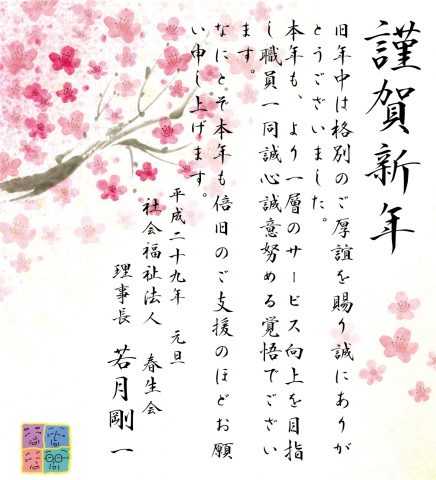 謹賀新年
旧年中は格別のご厚誼を賜り誠にありが
とうございました。
本年も、より一層のサービス向上を目指
し職員一同誠心誠意努める覚悟でござい
ます。
なにとぞ本年も倍旧のご支援のほどお願
い申し上げます。
平成二十九年 元旦
社会福祉法人 春生会
理事長 若月剛一